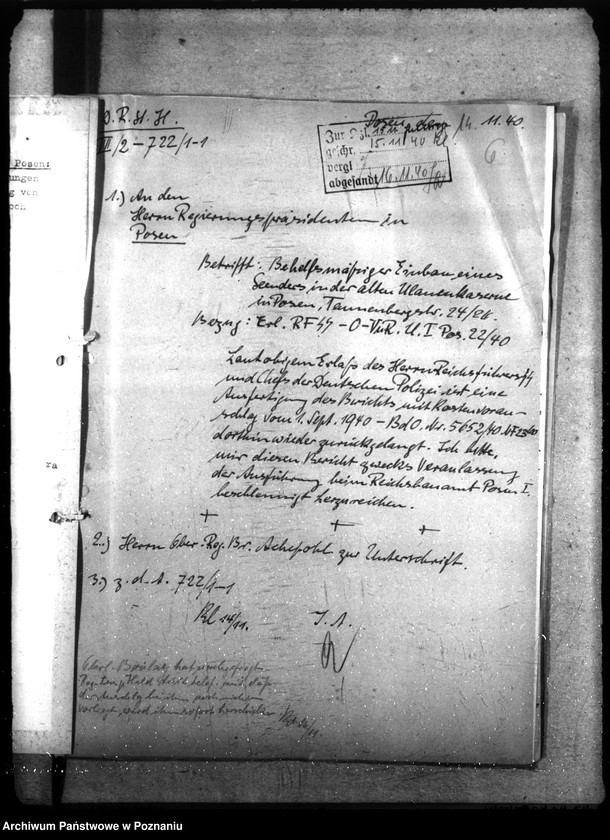 Posen:
ungen
g von
och
ra
D. R. St. H.
III/2-722/1-1
Posen, den 14. 11. 40.
6
Zur
geschr. 15.11 40 Kl
vergl.
abgesandt 16.11.40
1.) An den
Herrn Regierungspräsidenten in
Posen
Betrifft: Behelfsmäßiger Einbau eines
Senders, in der alten Ulanenkaserne
in Posen, Tannenbergstr. 24/26.
Bezug: Erl. RF SS -O-VuR. U. I Pos. 22/40
Laut obigem Erlaß des Herrn Reichsführers SS
und Chefs der Deutschen Polizei ist eine
Ausfertigung des Berichts mit Kostenvoran-
schlag vom 1. Sept. 1940 - BdO. Nr. 5652/40
dorthin wieder zurückgelangt. Ich bitte,
mir diesen Bericht zwecks Veranlassung
der Ausführung beim Reichsbauamt Posen I.
beschleunigt herzureichen.
+ + +
2.) Herrn Ober-Reg. Br. Achepohl zur Unterschrift.
3.) z. d. A. 722/1-1
Kl 14/11.
I. A.
Archiwum Państwowe w Poznaniu